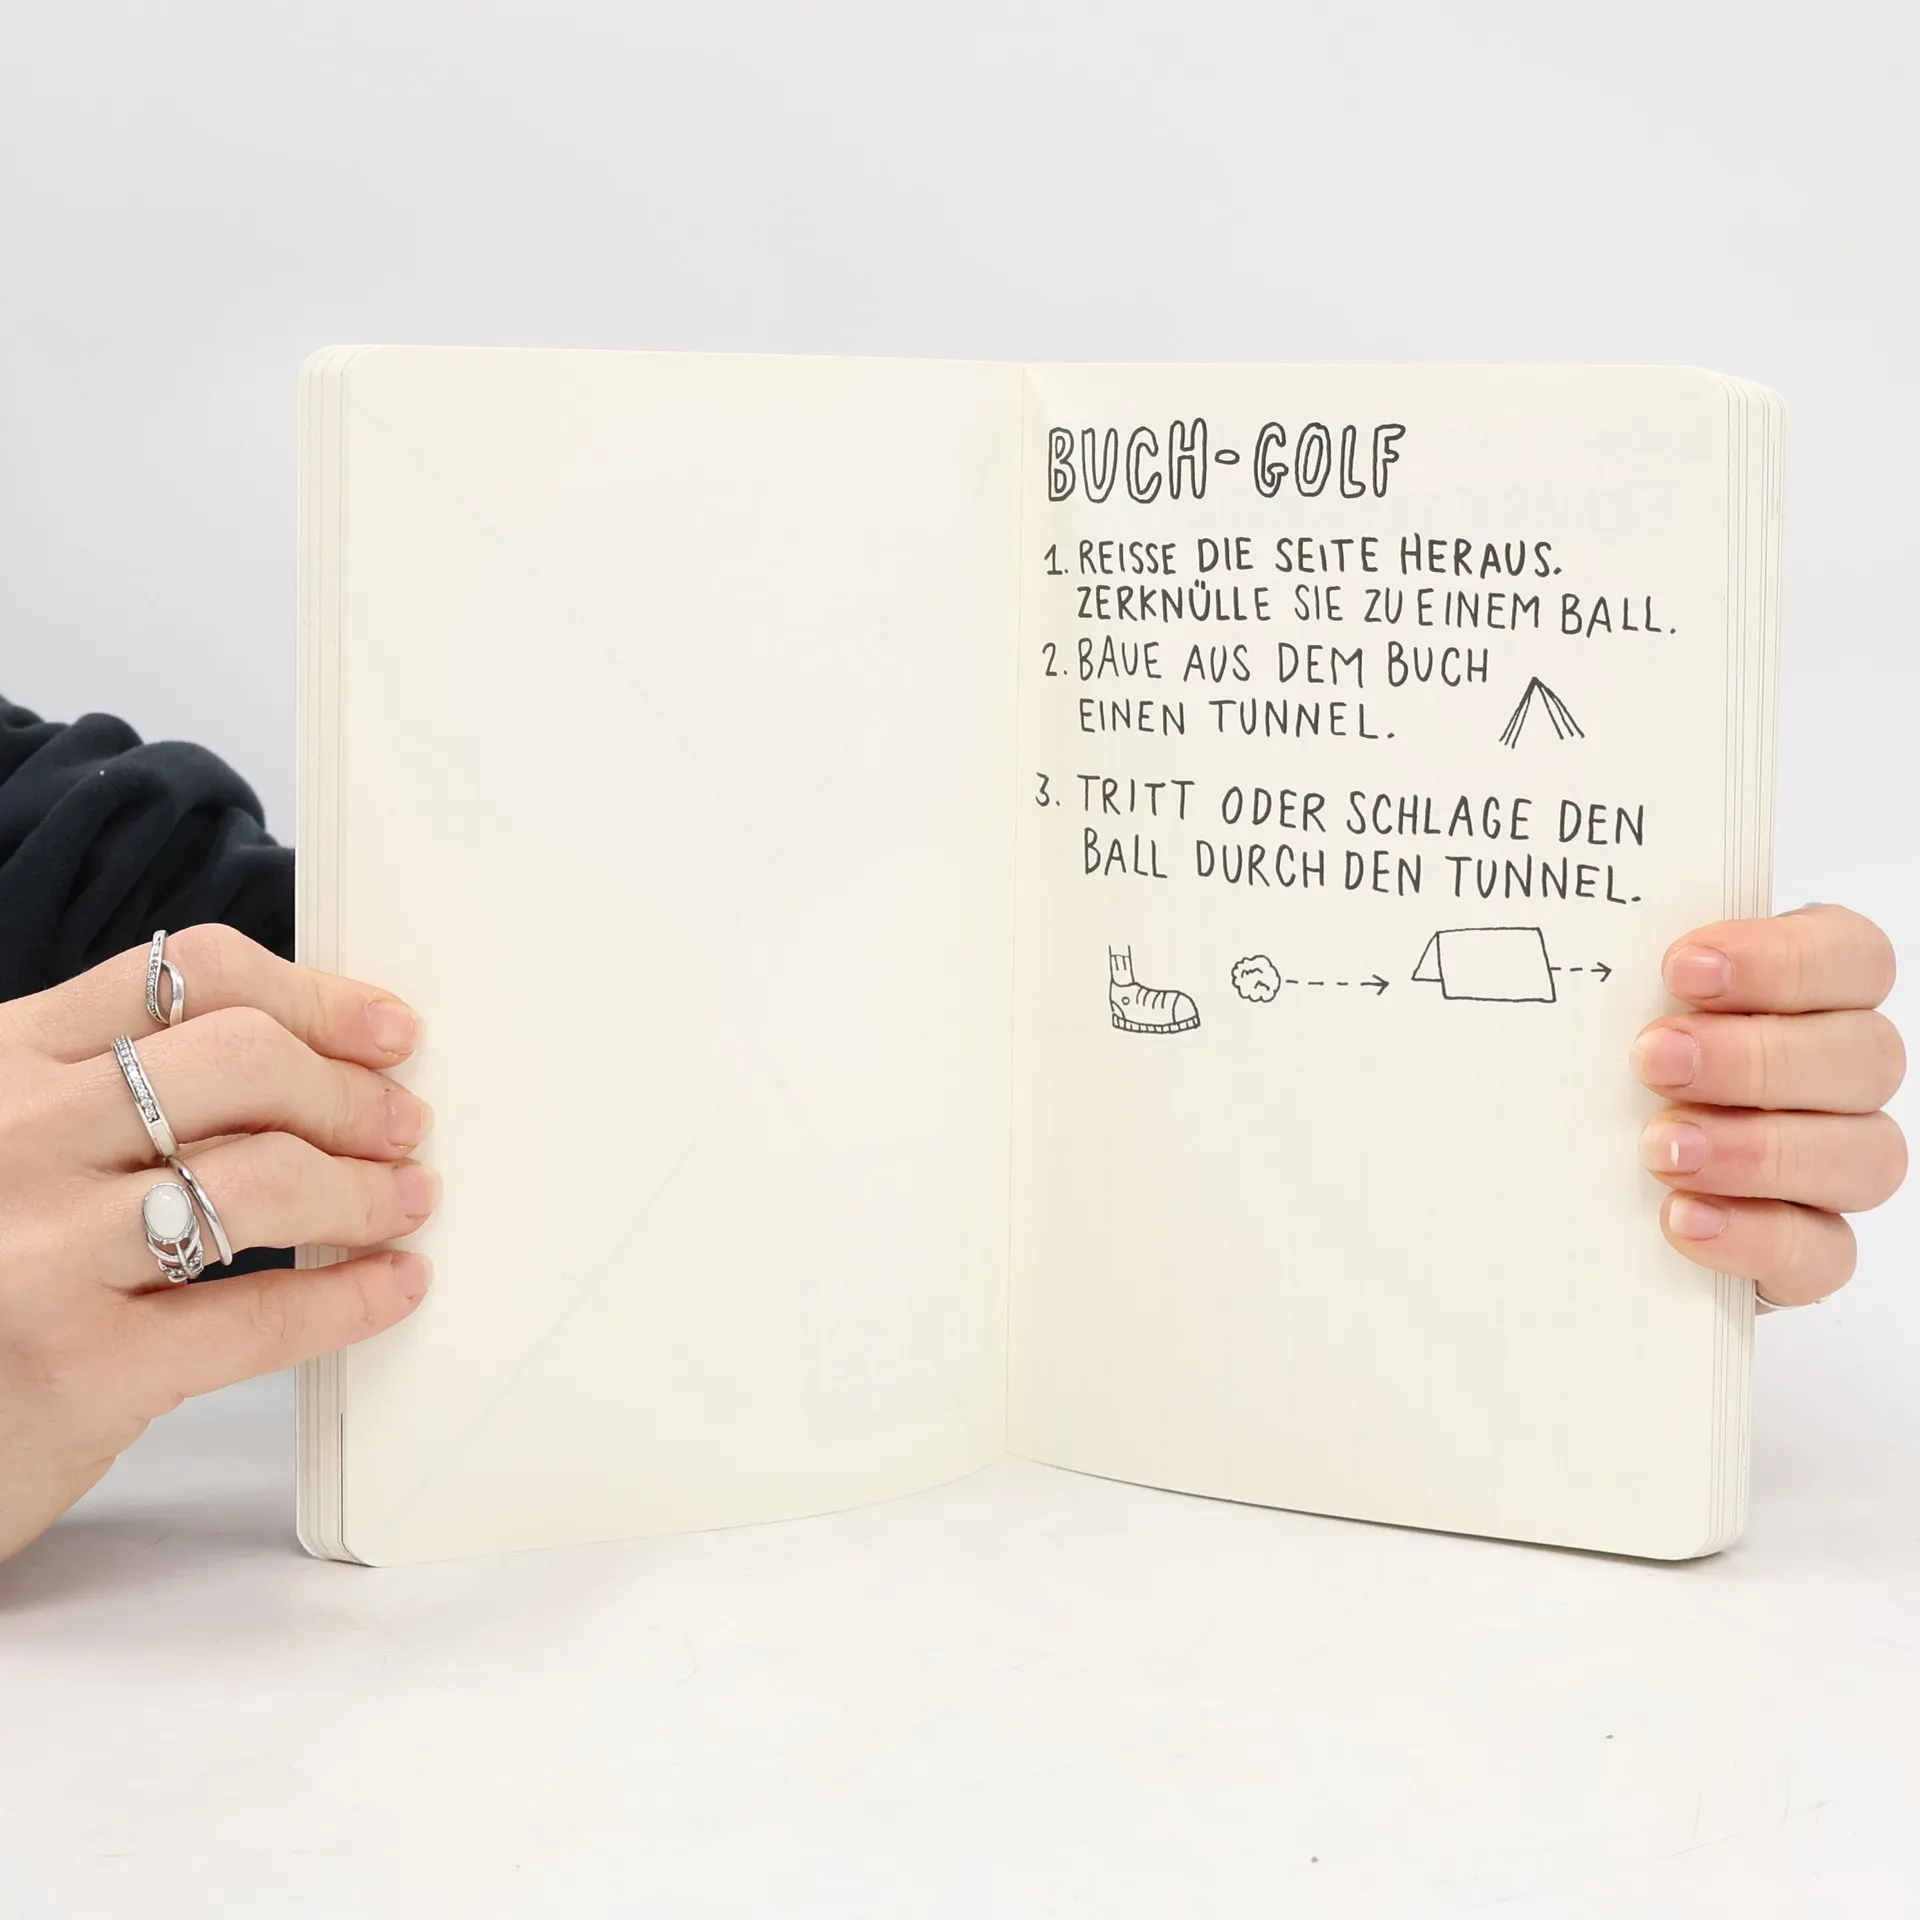 BUCH-GOLF
1. REISSE DIE SEITE HERAUS.
ZERKNÜLLE SIE ZU EINEM BALL.
2. BAUE AUS DEM BUCH
EINEN TUNNEL.
3. TRITT ODER SCHLAGE DEN
BALL DURCH DEN TUNNEL.